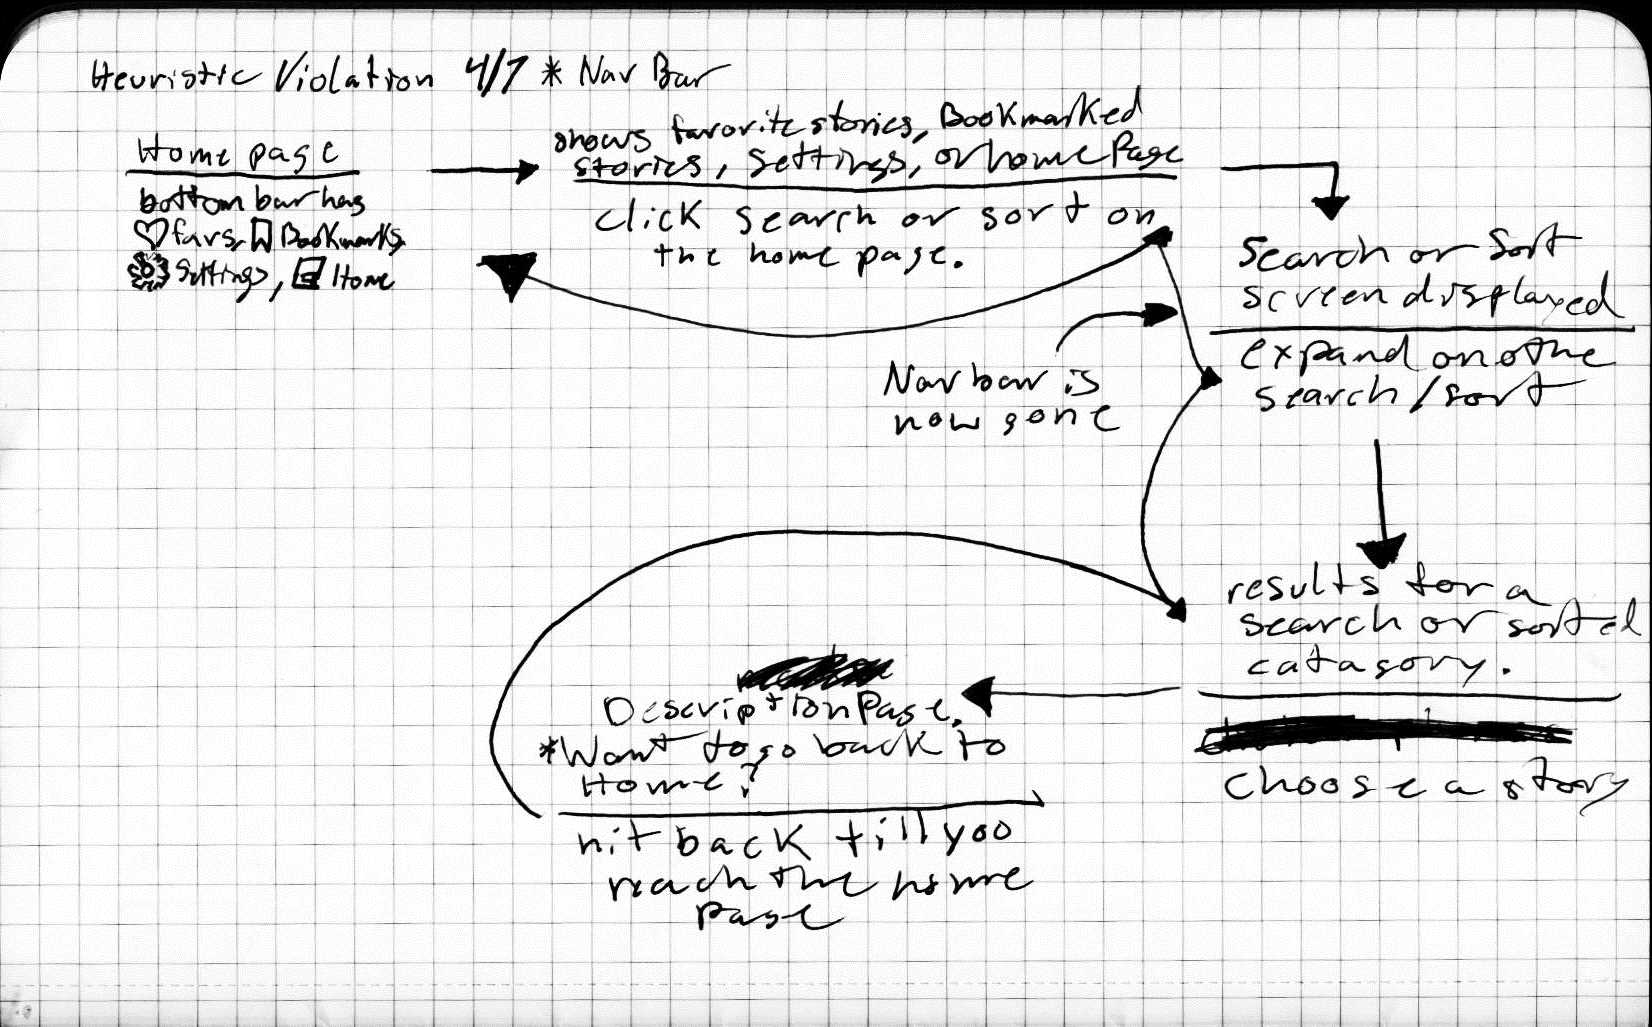 Heuristic Violation 4/7 * Nav Bar
Home page
bottom bar has
favs, Bookmarks
Settings, Home
shows favorite stories, Bookmarked
stories, settings, or home Page
click search or sort on
the home page.
Search or Sort
screen displayed
expand on the
search/sort
Nav bar is
now gone
results for a
search or sorted
catagory.
choose a story
Description Page.
*Want to go back to
Home?
hit back till you
reach the home
page